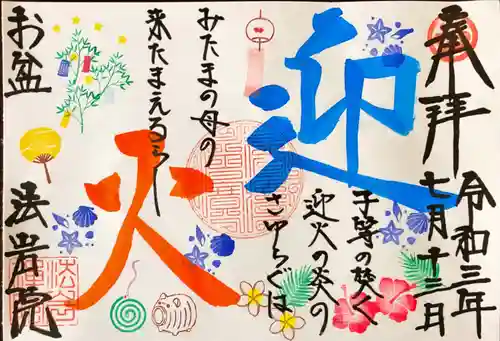 奉拝
令和三年
七月十三日
迎火
子等の焚く
迎火の炎の
さゆらぐは
みたまの母の
来たまえるらし
お盆
法岩院